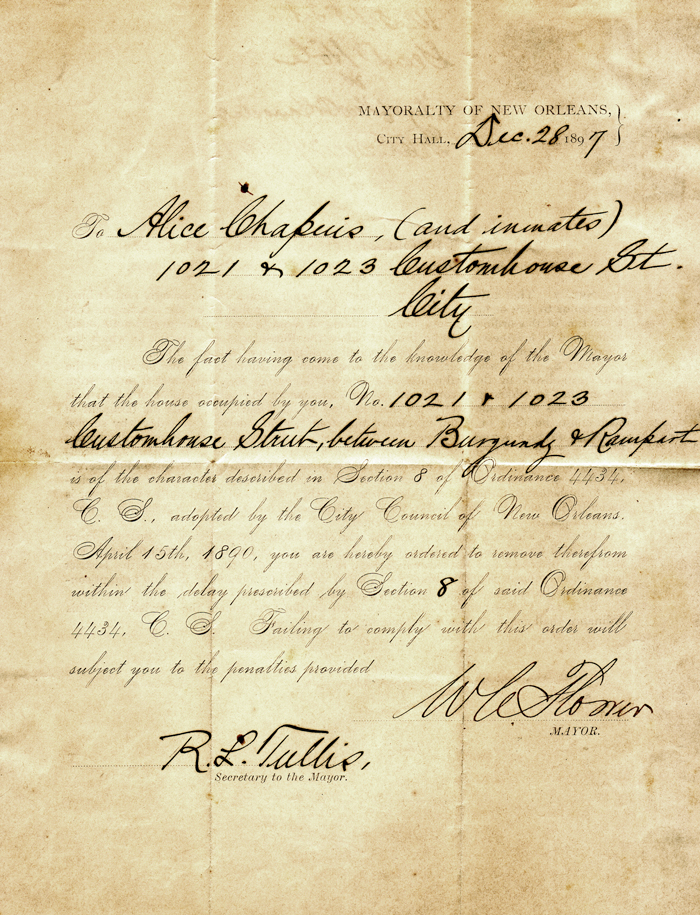 MAYORALTY OF NEW ORLEANS,
CITY HALL, Dec. 28 1897
To Alice Chapuis, (and inmates)
1021 & 1023 Customhouse St.
City
The fact having come to the knowledge of the Mayor
that the house occupied by you, No. 1021 & 1023
Customhouse Street, between Burgundy & Rampart
is of the character described in Section 8 of Ordinance 4434,
C. S., adopted by the City Council of New Orleans.
April 15th, 1890, you are hereby ordered to remove therefrom
within the delay prescribed by Section 8 of said Ordinance
4434, C. S. Failing to comply with this order will
subject you to the penalties provided
W C Flower
MAYOR.
R. L. Tullis,
Secretary to the Mayor.